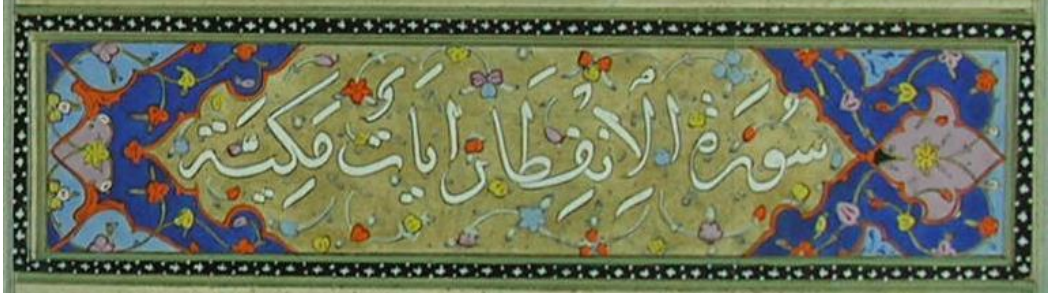 سُورَة الْاِنْفِطَار ايَات مَكِيَّة